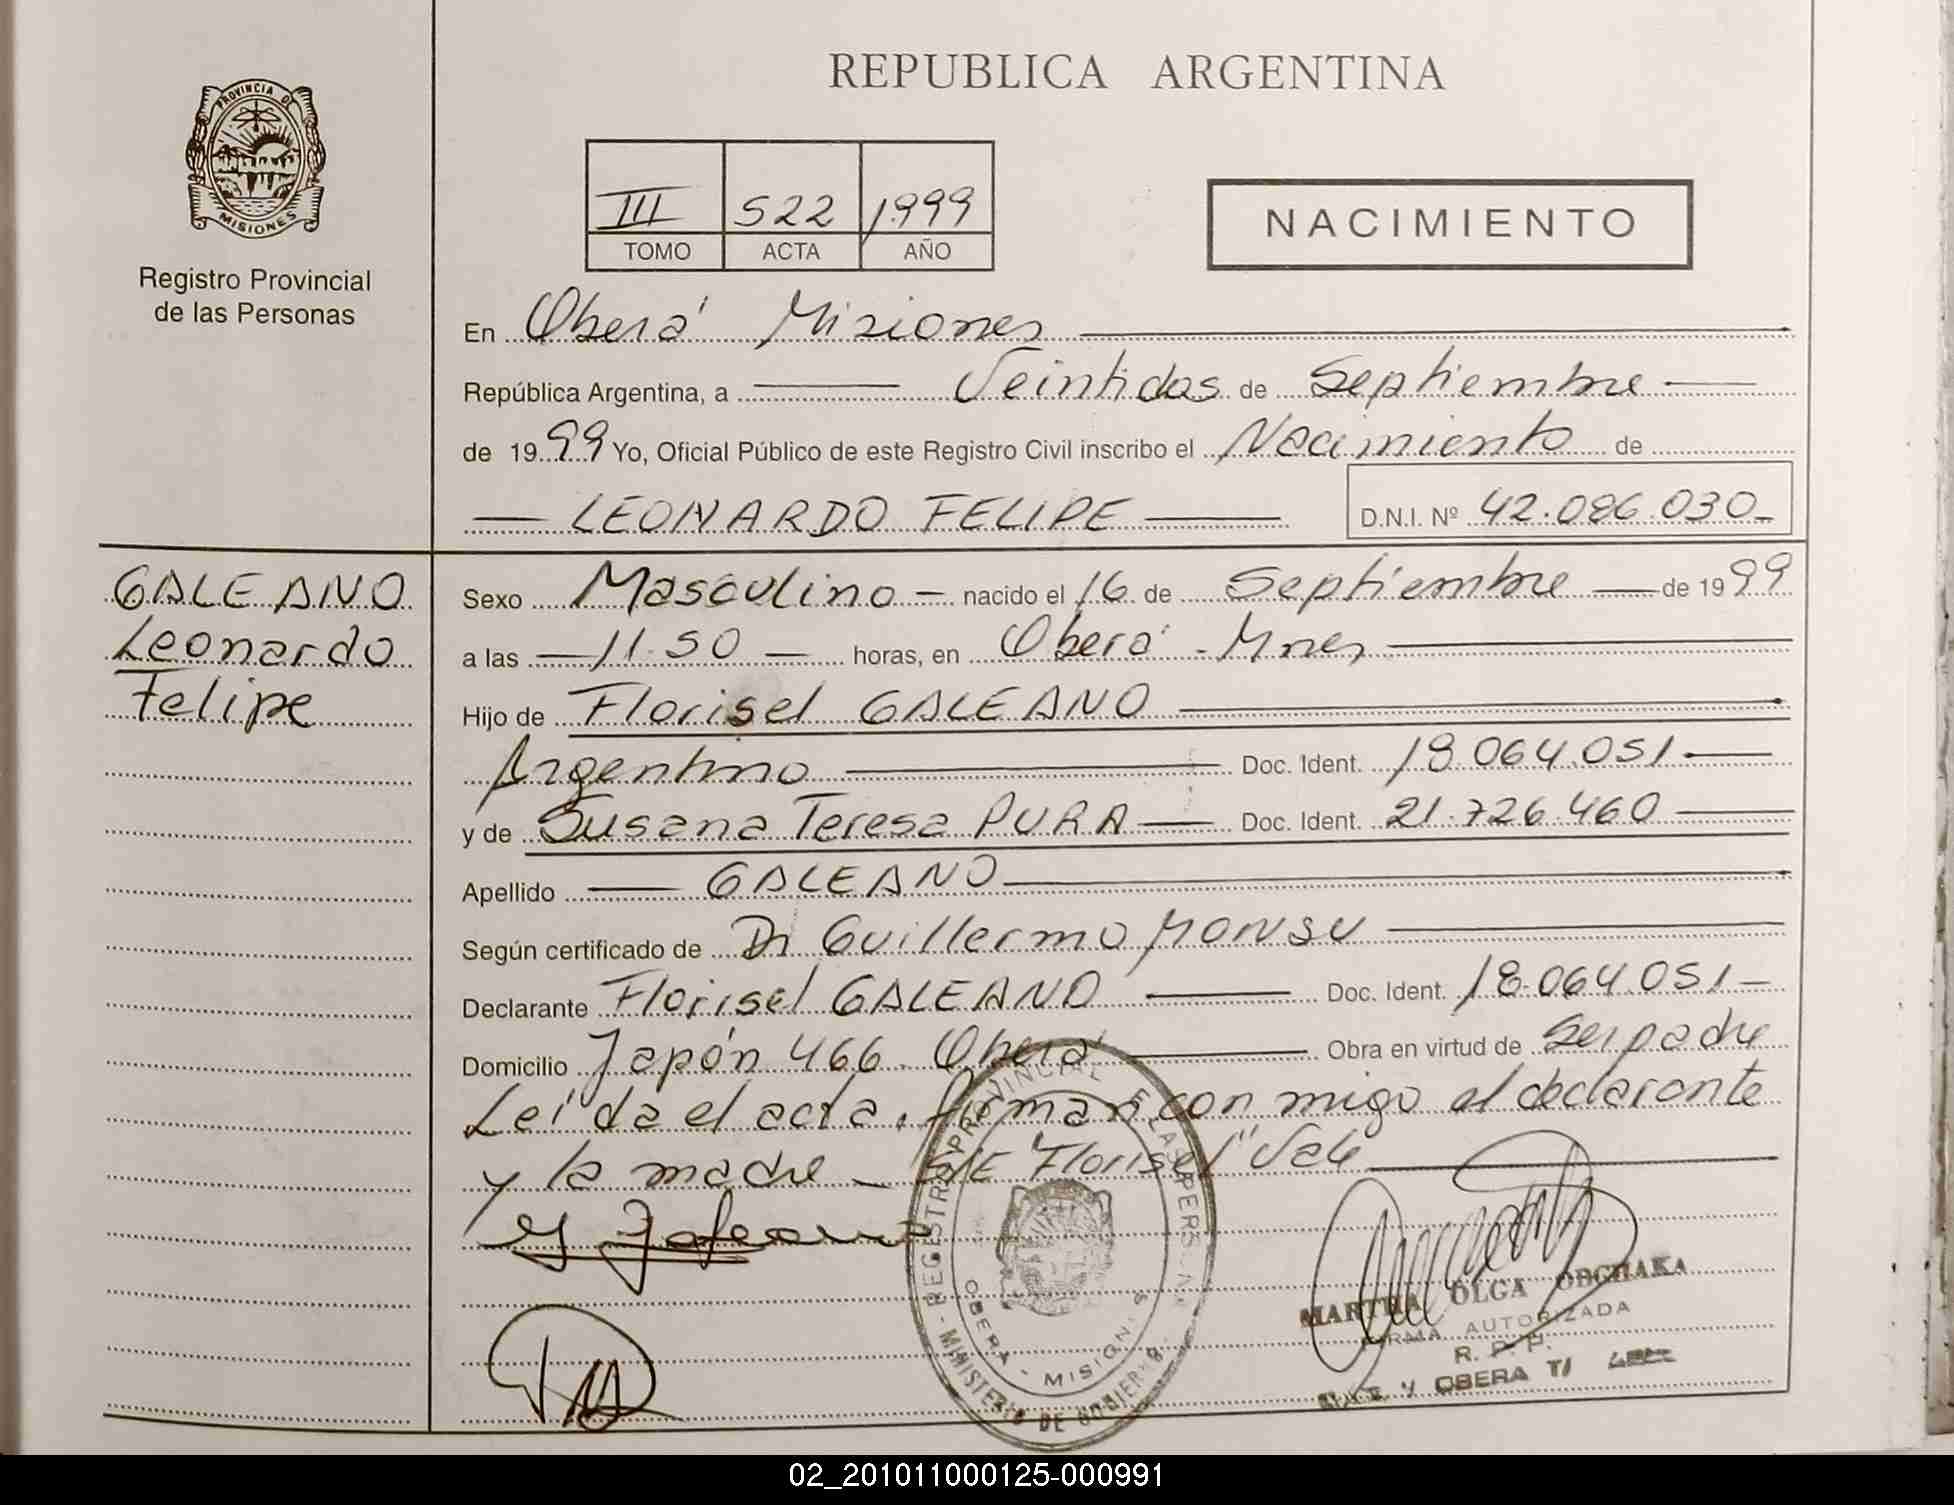 PROVINCIA DE
MISIONES
Registro Provincial
de las Personas
REPUBLICA ARGENTINA
III 522 1999
TOMO ACTA AÑO
NACIMIENTO
En Oberá Misiones
República Argentina, a Veintidos de Septiembre
de 1999 Yo, Oficial Público de este Registro Civil inscribo el Nacimiento de
LEONARDO FELIPE D.N.I. Nº 42.086.030
GALEANO
Leonardo
Felipe
Sexo Masculino nacido el 16 de Septiembre de 1999
a las 11.50 horas, en Oberá - Mnes
Hijo de Florisel GALEANO
Argentino Doc. Ident. 18.064.051
y de Susana Teresa PURA Doc. Ident. 21.726.460
Apellido GALEANO
Según certificado de Dr Guillermo MONSU
Declarante Florisel GALEANO Doc. Ident. 18.064.051
Domicilio Japón 466. Oberá Obra en virtud de Ser padre
Leída el acta, firman conmigo el declarante
y la madre _ S/E "Florisel" Vale
REGISTRO PROVINCIAL LAS PERSONAS
OBERA - MISIONES
MINISTERIO DE GOBIERNO
MARTHA OLGA
FIRMA AUTORIZADA
R. P. P.
OBERA
02_201011000125-000991